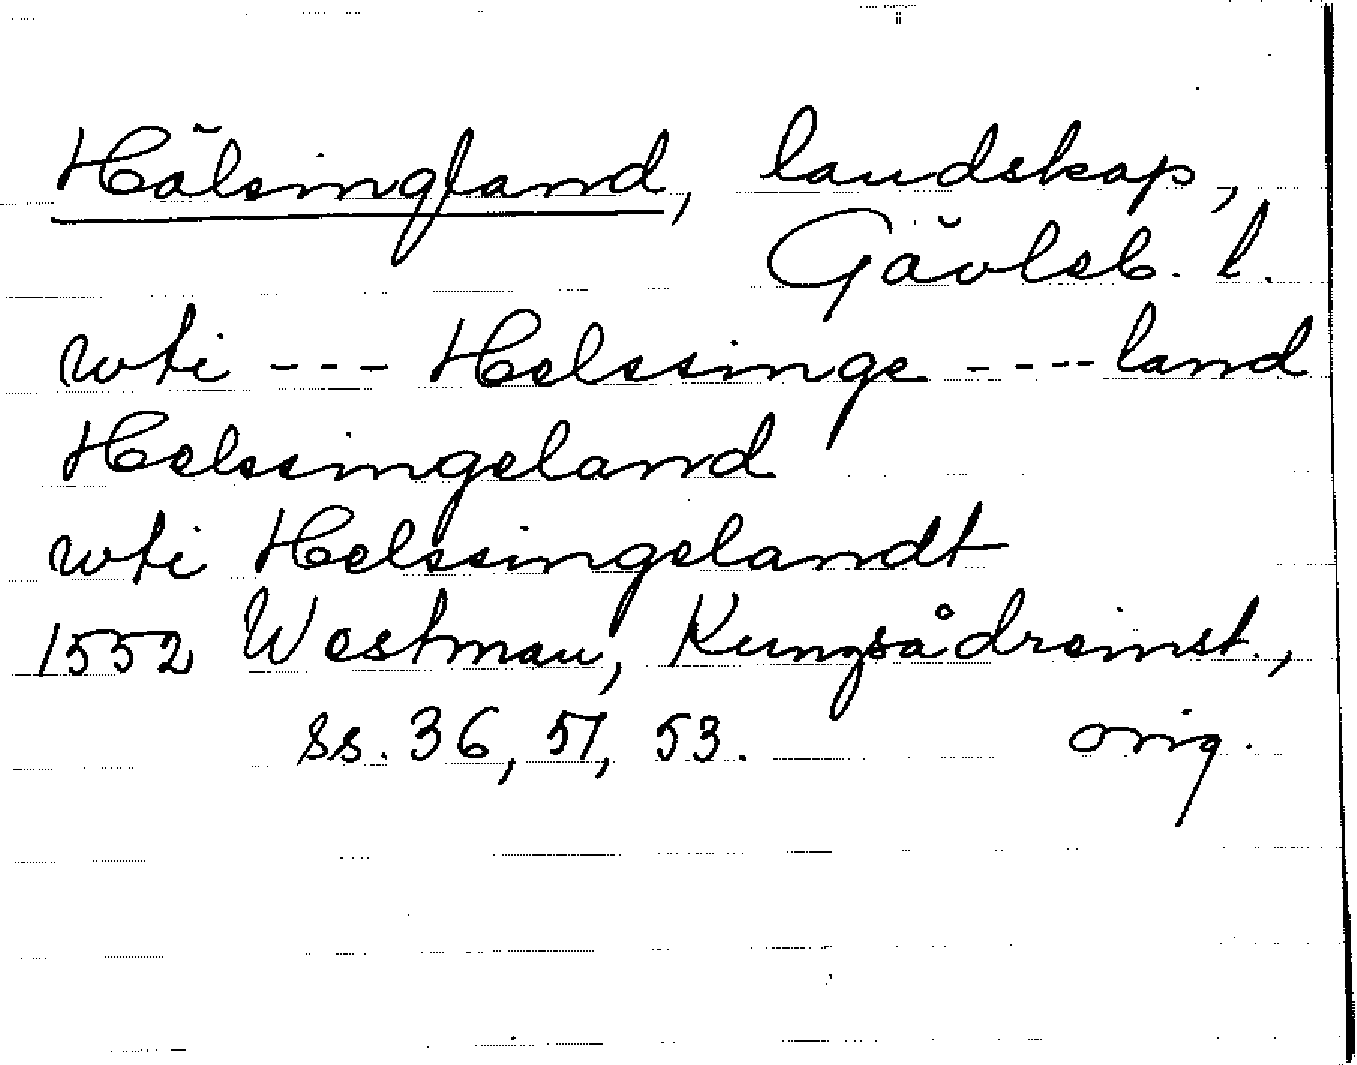 Hälsingland, landskap,
Gävleb. l.
wti --- Helssinge ---- land
Helsingeland
wti Helssingelandt
1552 Westman, Kungsådreinst.,
ss. 36, 51, 53. orig.